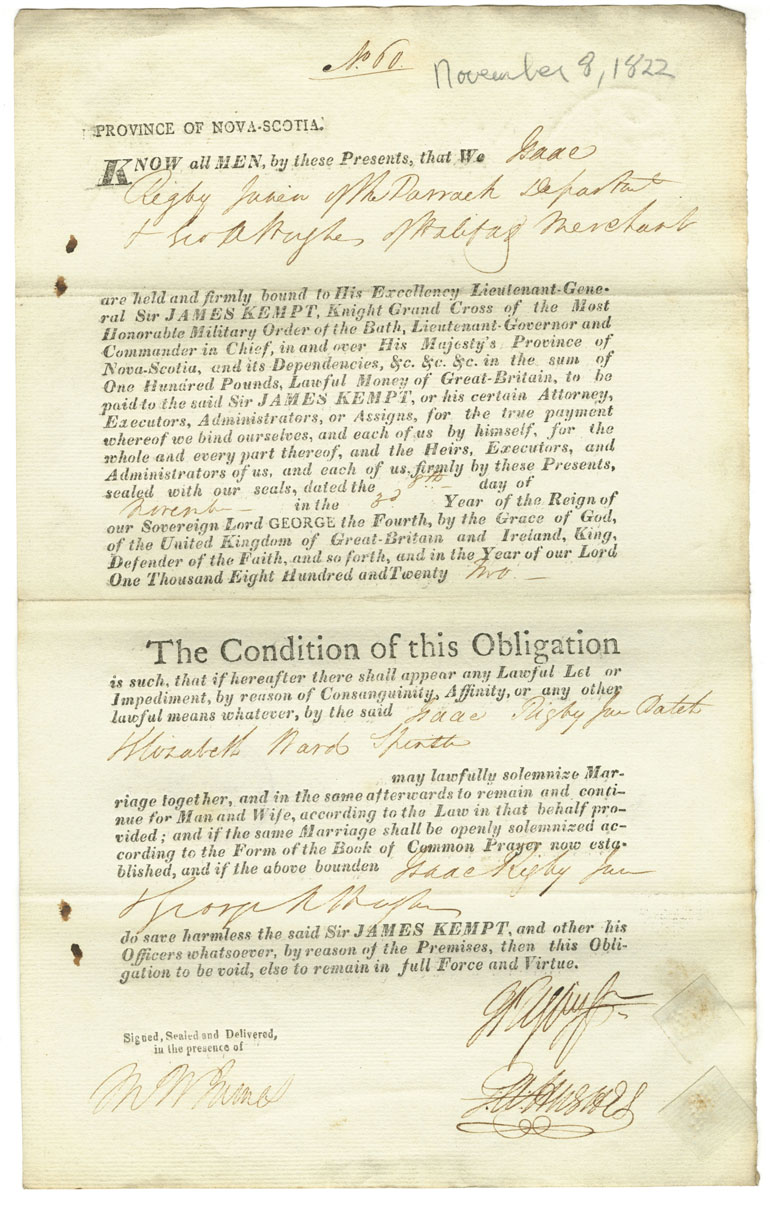 No. 60.
November 8, 1822
PROVINCE OF NOVA-SCOTIA.
KNOW all MEN, by these Presents, that We Isaac
Rigby Junior of the Barrack Department
& Geo A Hughes of Halifax Merchant
are held and firmly bound to His Excellency Lieutenant-Gene-
ral Sir JAMES KEMPT, Knight Grand Cross of the Most
Honorable Military Order of the Bath, Lieutenant-Governor and
Commander in Chief, in and over His Majesty's Province of
Nova-Scotia, and its Dependencies, &c. &c. &c. in the sum of
One Hundred Pounds, Lawful Money of Great-Britain, to be
paid to the said Sir JAMES KEMPT, or his certain Attorney,
Executors, Administrators, or Assigns, for the true payment
whereof we bind ourselves, and each of us by himself, for the
whole and every part thereof, and the Heirs, Executors, and
Administrators of us, and each of us, firmly by these Presents,
sealed with our seals, dated the 8th day of
in the 3d Year of the Reign of
our Sovereign Lord GEORGE the Fourth, by the Grace of God,
of the United Kingdom of Great-Britain and Ireland, King,
Defender of the Faith, and so forth, and in the Year of our Lord
One Thousand Eight Hundred and Twenty two
The Condition of this Obligation
is such, that if hereafter there shall appear any Lawful Let or
Impediment, by reason of Consanguinity, Affinity, or any other
lawful means whatever, by the said Isaac Rigby Jun
Elizabeth Ward
may lawfully solemnize Mar-
riage together, and in the same afterwards to remain and conti-
nue for Man and Wife, according to the Law in that behalf pro-
vided; and if the same Marriage shall be openly solemnized ac-
cording to the Form of the Book of Common Prayer now esta-
blished, and if the above bounden Isaac Rigby Jun
& George A Hughes
do save harmless the said Sir JAMES KEMPT, and other his
Officers whatsoever, by reason of the Premises, then this Obli-
gation to be void, else to remain in full Force and Virtue.
Signed, Sealed and Delivered,
in the presence of
G. A. Hughes